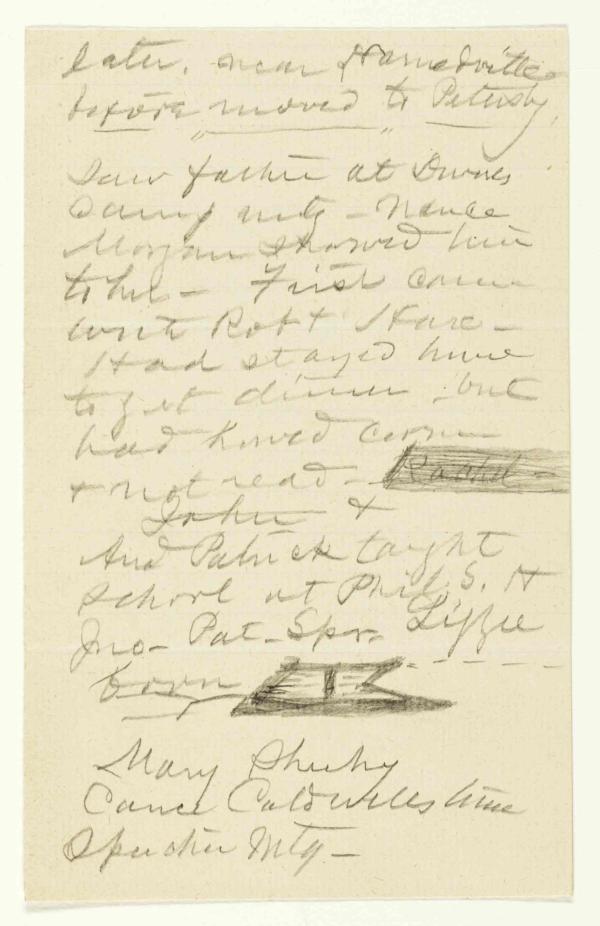 later, near Harnedsville
before moved to Petersby,
Saw father at
Camp mtg - Nance
Morgan showed him
to her - First came
with Robt Hare -
Had stayed home
to get dinner, but
had howed corn
& not read - Rachel -
John &
And Patrick taught
school at Phil. S. H
Jno - Pat - Spr. Lizzie
born
Mary Sheehy
Cance Caldwells time
Speecher Mtg -